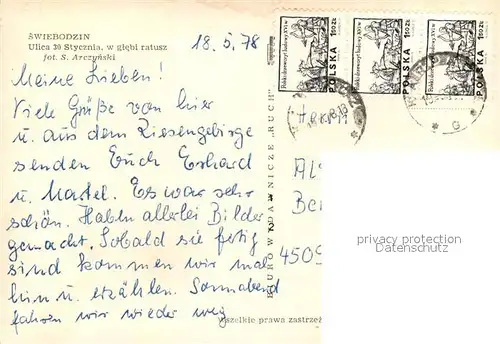 ŚWIEBODZIN
Ulica 30 Stycznia, w głębi ratusz
fot. S. Arczyński
18.5.78
Meine Lieben!
Viele Grüße von hier
u. aus dem Riesengebirge
senden Euch Erhard
u. Martel. Es war sehr
schön. Haben allerlei Bilder
gemacht. Sobald sie fertig
sind kommen wir mal
hin u. erzählen. Sonnabend
fahren wir wieder weg
BIURO WYDAWNICZE „RUCH"
Wszelkie prawa zastrzeż
Polski drzeworyt ludowy XVI w.
1.50 ZŁ
POLSKA
Polski drzeworyt ludowy XVI w.
1.50 ZŁ
POLSKA
Polski drzeworyt ludowy XVI w.
1.50 ZŁ
POLSKA
G
4509
privacy protection
Datenschutz